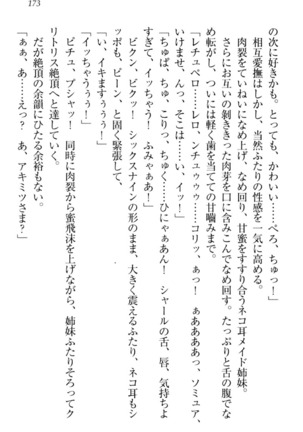 173
の次に好きかも。とっても、かわいい……ぺろ、ちゅっ！」
相互愛撫はしかし、当然ふたりの性感を一気に高める。
肉裂をていねいになめ回し、甘蜜をすすり合うネコ耳メイド姉妹。
さらにお互いの剝ききった肉芽を口に含みこんでなめ回す。たっぷりと舌の腹でな
め転がし、ついには軽く歯を当てての甘嚙みまで。
「レチュペロ……レロ、ンチュゥゥゥ……コリッ、ぁっ！　ぁああああっ、ソミュア、
いけませ、んっ、そこは……ぃ、イッ！」
「ちゅぱ、ちゅ、こりっ、ちゅく……ひにゃぁあん！　シャールの舌、唇、気持ちよ
すぎて、イッちゃう！　ふみゃぁあ！」
ビクン、ビクッ！　シックスナインの形のまま、大きく震えるふたり、ネコ耳もシ
ッポも、ビーン、と固く緊張して、
「い、イキますぅぅぅ！」
「イっちゃうぅぅっ！」
ビチュ、プシャッ！　同時に肉裂から蜜飛沫を上げながら、姉妹ふたりそろってク
リトリス絶頂へと達していく。
だが絶頂の余韻にひたる余裕もない。
「ぁぁ、あ……えっ？　あ、アキミツさま？」